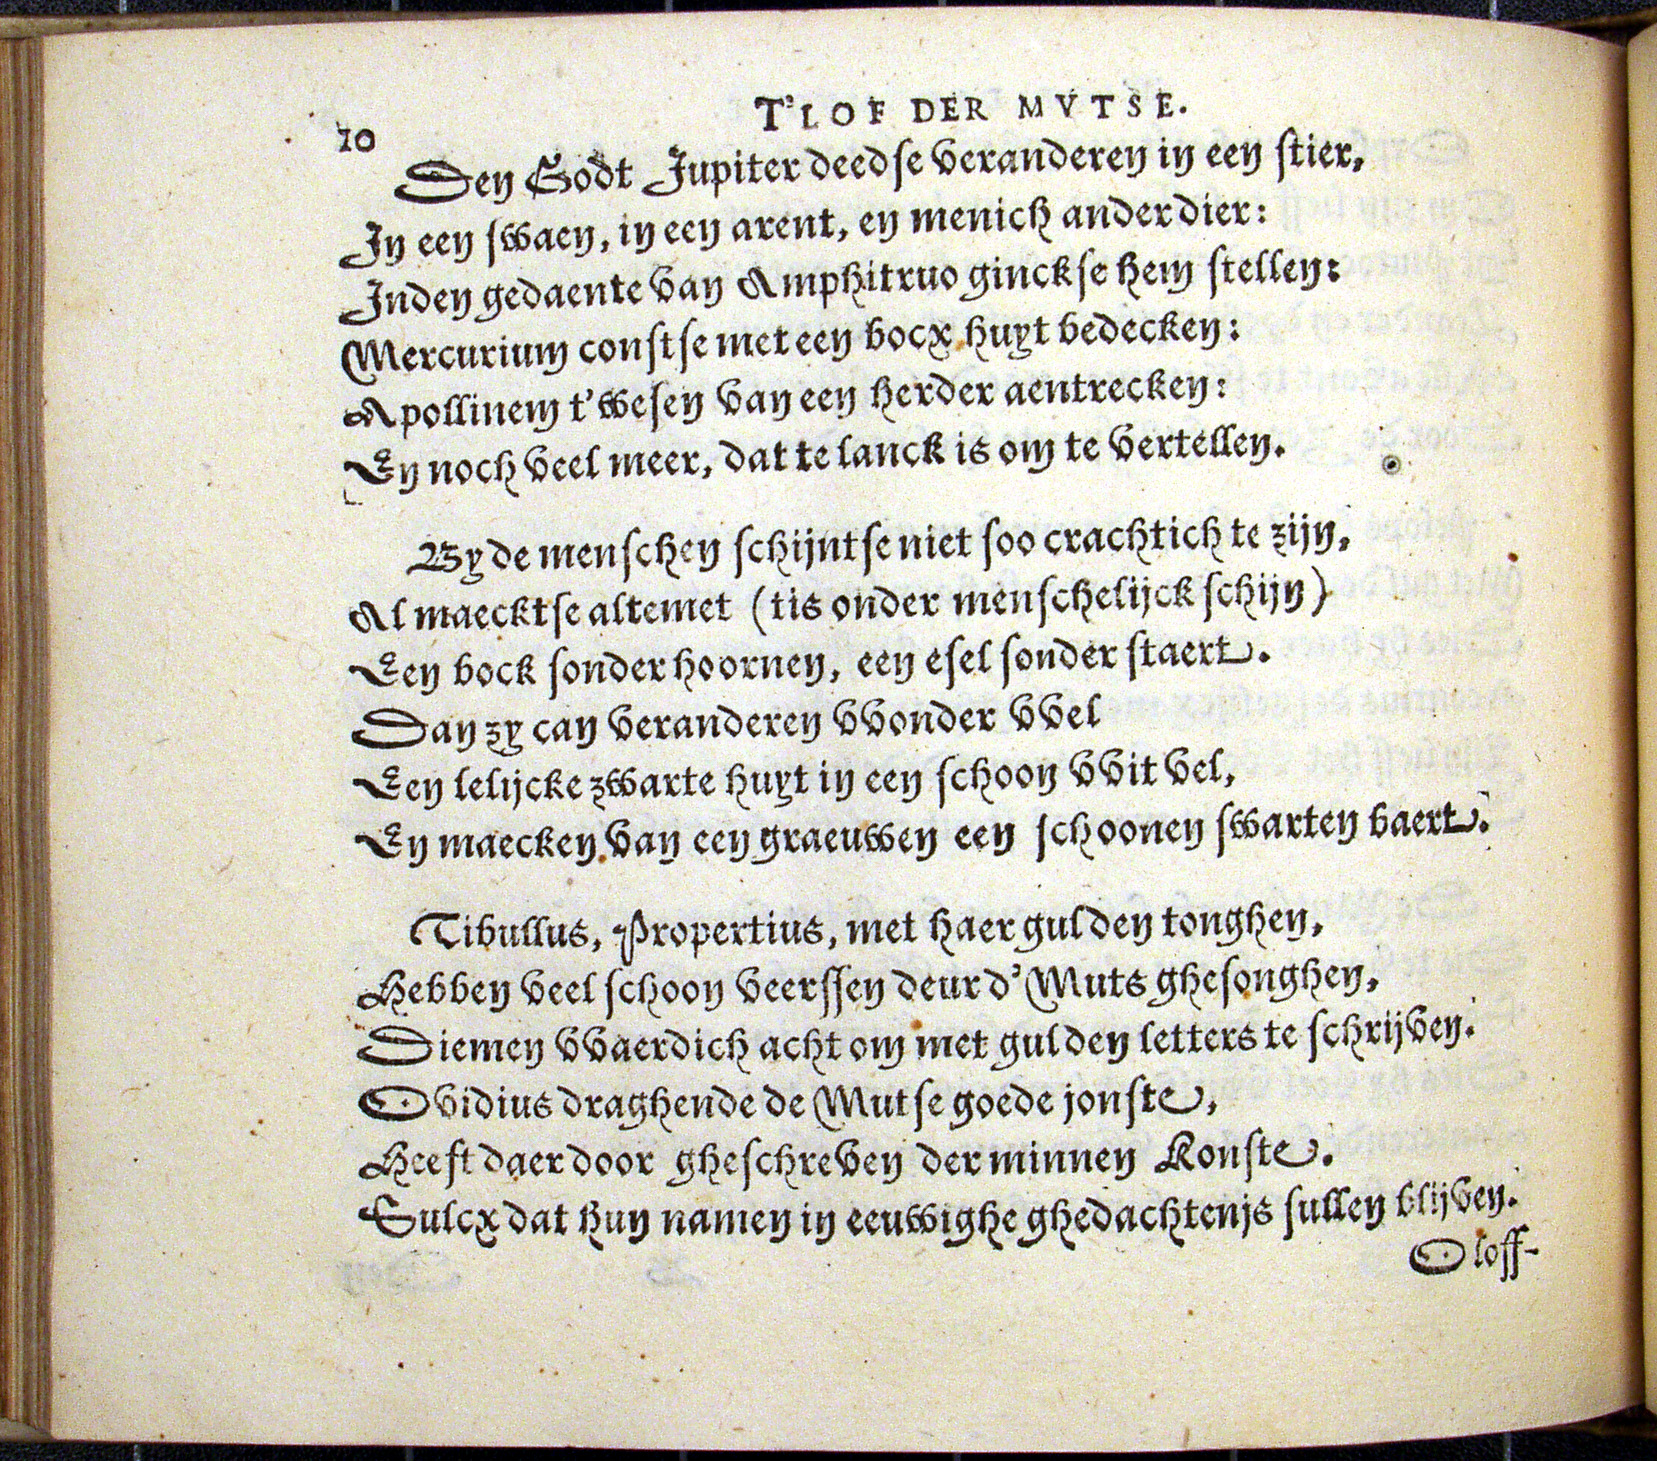 T'LOF DER MVTSE.
10
Den Godt Jupiter deedse veranderen in een stier,
In een swaen, in een arent, en menich ander dier:
Inden gedaente van Amphitruo ginckse hem stellen:
Mercurium constse met een bocx huyt bedecken:
Apollinem t'wesen van een herder aentrecken:
En noch veel meer, dat te lanck is om te vertellen.
By de menschen schijntse niet soo crachtich te zijn,
Al maecktse altemet (tis onder menschelijck schijn)
Een bock sonder hoornen, een esel sonder staert.
Dan zy can veranderen vvonder vvel
Een lelijcke zwarte huyt in een schoon vvit vel,
En maecken van een graeuwen een schoonen swarten baert.
Tibullus, Propertius, met haer gulden tonghen,
Hebben veel schoon veerssen deur d'Muts ghesonghen,
Diemen vvaerdich acht om met gulden letters te schrijven.
Ovidius draghende de Mutse goede jonste,
Heeft daer door gheschreven der minnen Konste.
Sulcx dat hun namen in eeuwighe ghedachtenis sullen blijven.
O loff-